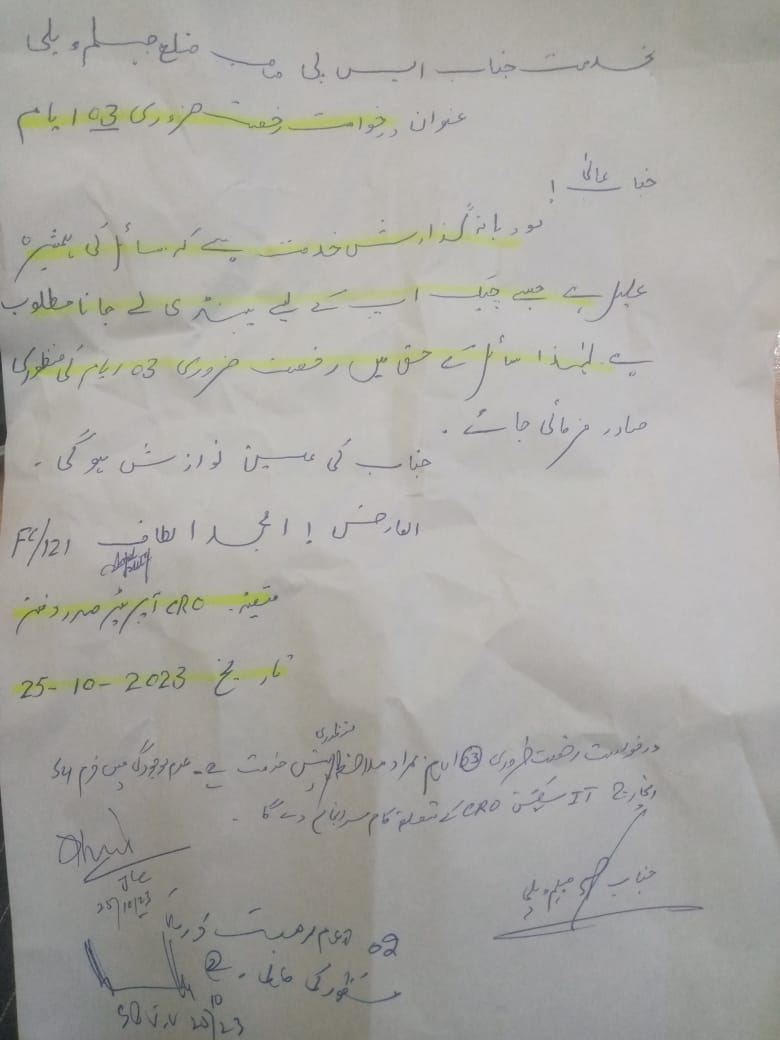 بخدمت جناب ایس پی صاحب ضلع جہلم ویلی
عنوان درخواست رخصت ضروری 03 ایام
جناب عالی !
مودبانہ گذارش خدمت ہے کہ سائل کی ہمشیرہ
علیل ہے جسے چیک اپ کے لیے پنڈی لے جانا مطلوب
ہے لہٰذا سائل کے حق میں رخصت ضروری 03 ایام کی منظوری
صادر فرمائی جائے ۔
جناب کی عین نوازش ہو گی ۔
العارض ! امجد الطاف FC/121
متعینہ CRO آپریٹر صدر دفتر
تاریخ 25-10-2023
درخواست رخصت ضروری 03 ایام بمراد ملاحظہ منظوری پیش خدمت ہے ۔ عدم موجودگی میں
انچارج IT سیکشن CRO کے متعلقہ کام سرانجام دے گا ۔
25/10/23
جناب SP جہلم ویلی
02 ایام رخصت
منظور کی جاتی ہے